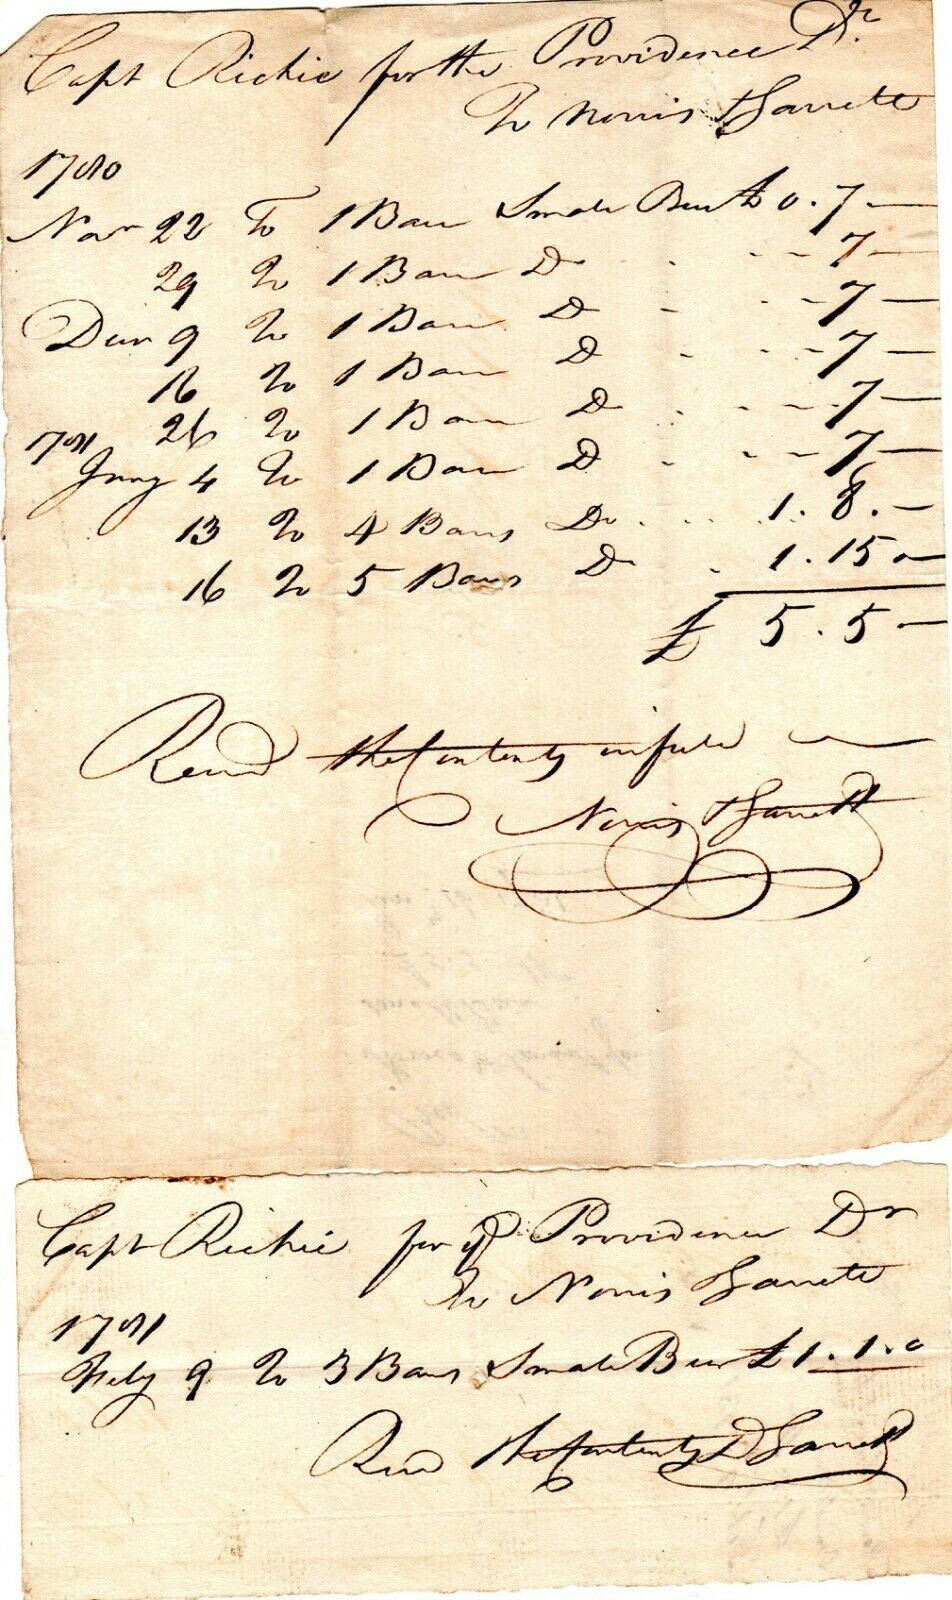 Capt Richie for the Providence Dr.
To Norris & Garrett
1780
Novr 22 To 1 Barr Small Beer £ 0. 7 —
29 To 1 Barr Do - - 7 —
Decr 9 To 1 Barr Do - - 7 —
16 To 1 Barr Do - - 7 —
26 To 1 Barr Do - - 7 —
1781
Jany 4 To 1 Barr Do - - 7 —
13 To 4 Barrs Do . . . 1. 8. —
16 To 5 Barrs Do . 1. 15 —
£ 5. 5 —
Recd the Contents in full
Norris & Garrett
Capt Richie for ye Providence Dr
To Norris Garrett
1781
Feby 9 To 3 Barrs Small Beer £ 1. 1. 0
Recd the Contents D Garrett